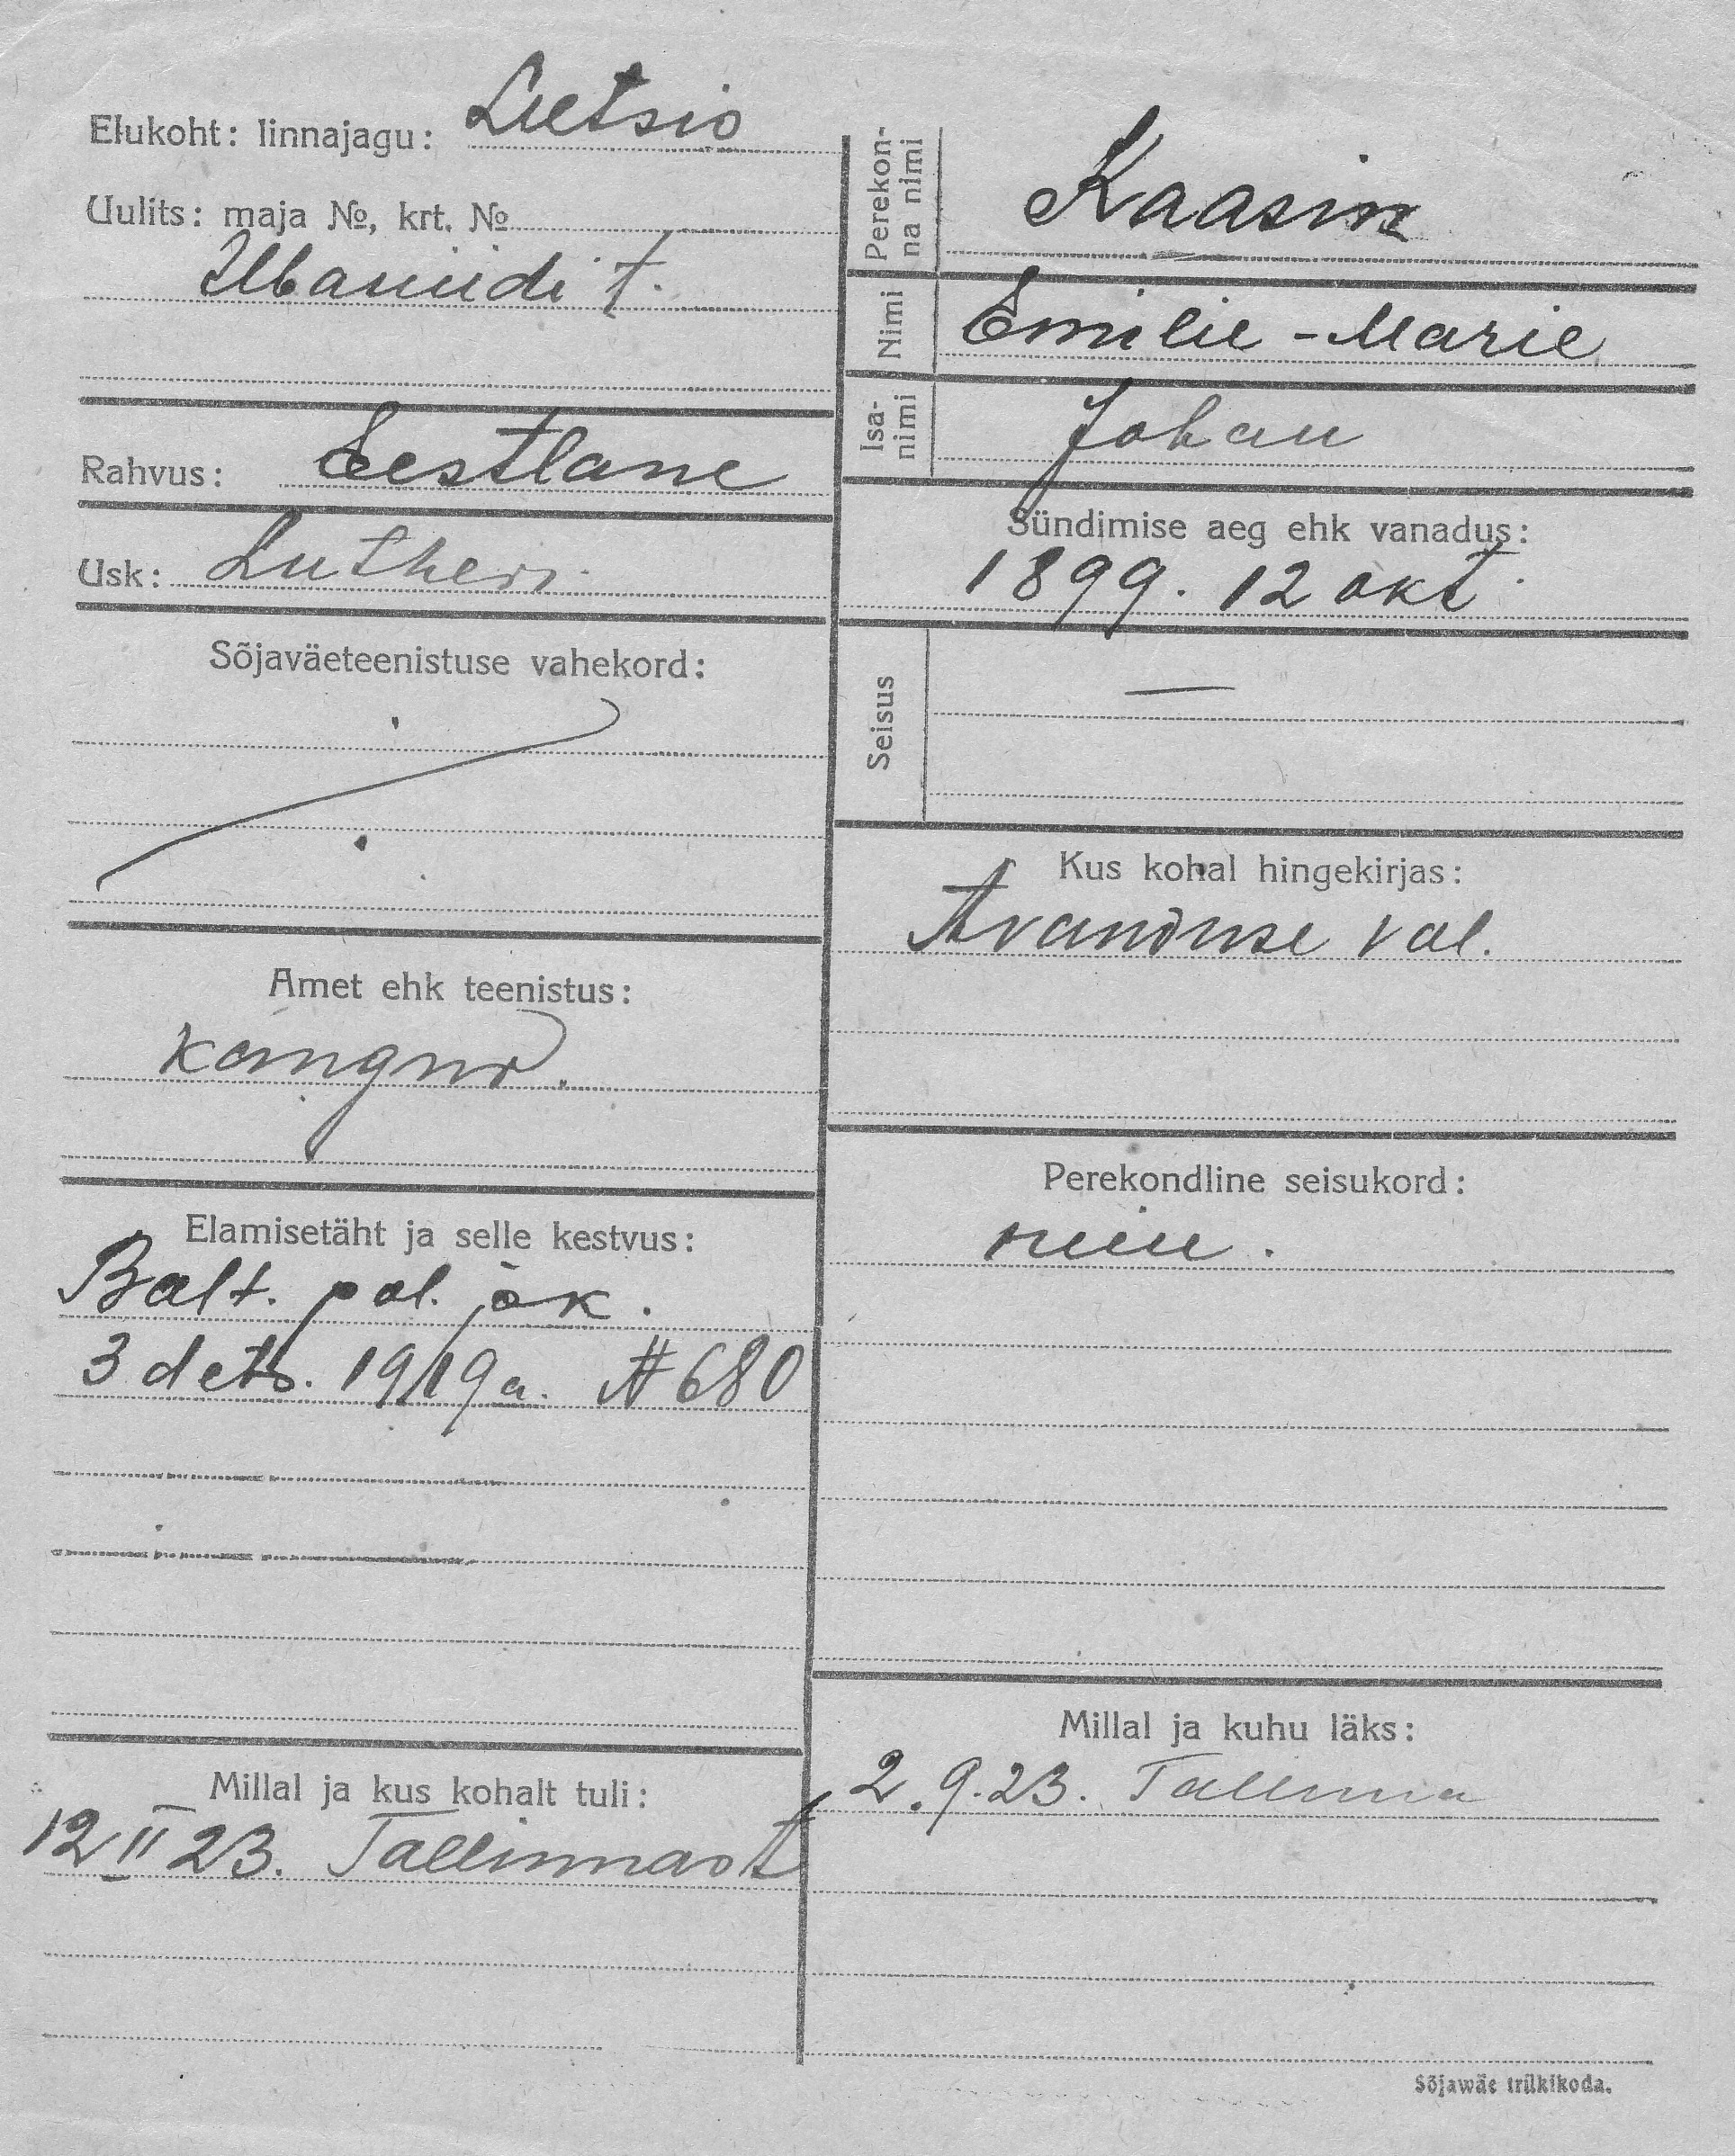 Elukoht: linnajagu: Lietsio
Uulits: maja №, krt. №
Rahvus: Eestlane
Usk: Lutheri
Sõjaväeteenistuse vahekord:
Amet ehk teenistus:
kangur.
Elamisetäht ja selle kestvus:
Balt. pol. jsk.
3 dets. 1919 a. № 680
Millal ja kus kohalt tuli:
12 II 23. Tallinnast
Perekon-
na nimi
Kaasik
Nimi Emilie-Marie
Isa-
nimi
Johan
Sündimise aeg ehk vanadus:
1899. 12 okt.
Seisus —
Kus kohal hingekirjas:
Avanduse val.
Perekondline seisukord:
neiu.
Millal ja kuhu läks:
2.9.23. Tallinna
Sõjawäe trükikoda.